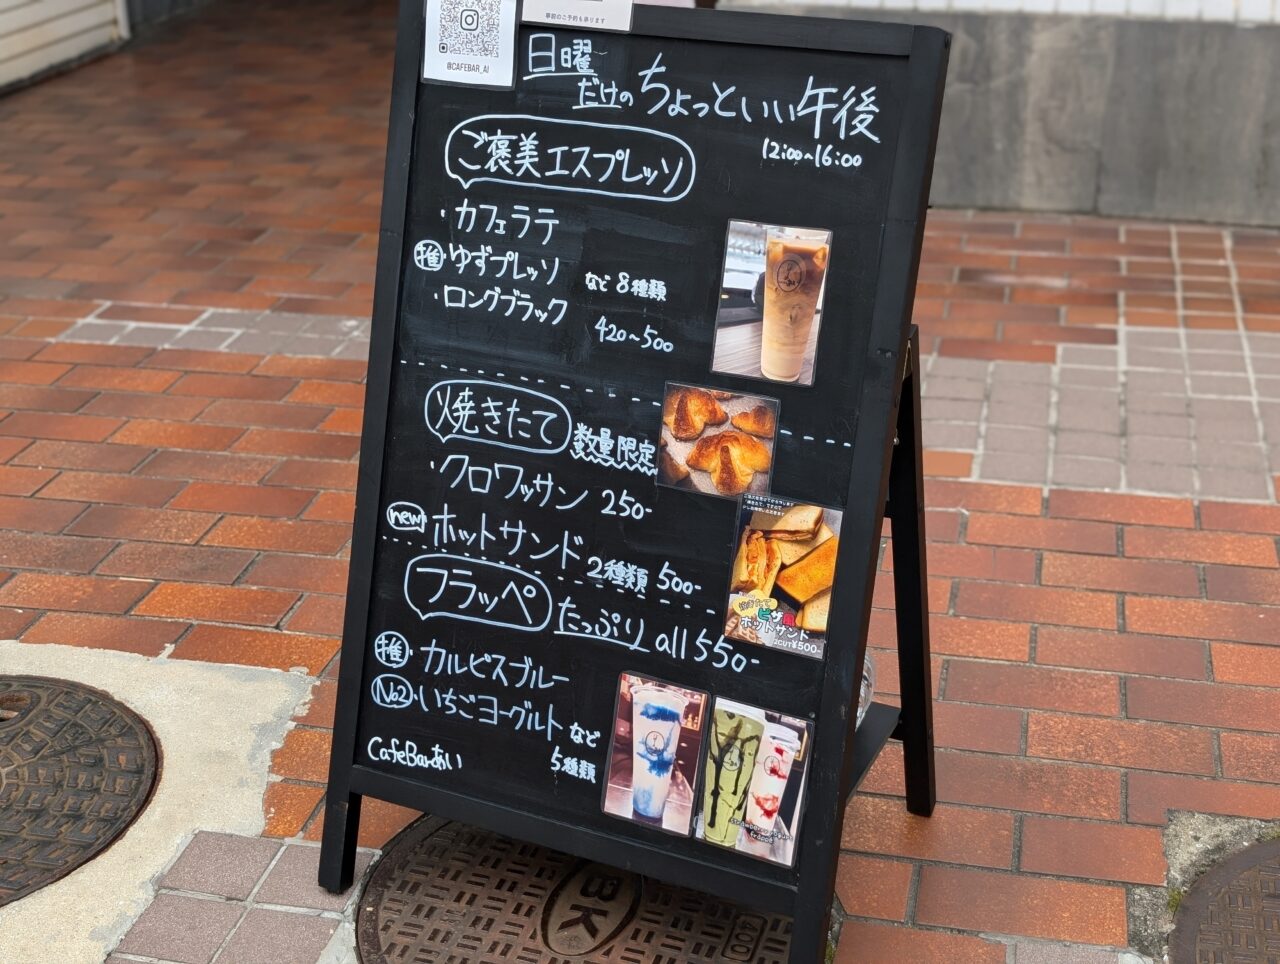 @CAFEBAR_AI
事前のご予約も承ります
日曜
だけの ちょっといい午後
12:00~16:00
ご褒美エスプレッソ
・カフェラテ
推・ゆずプレッソ
・ロングブラック
など 8種類
420~500
焼きたて 数量限定
・クロワッサン 250-
new ホットサンド 2種類 500-
フラッペ たっぷり all 550-
推・カルピスブルー
No2・いちごヨーグルト など
5種類
CafeBarあい
焼きたて
ピザ風
ホットサンド
2CUT¥500-
BK
400